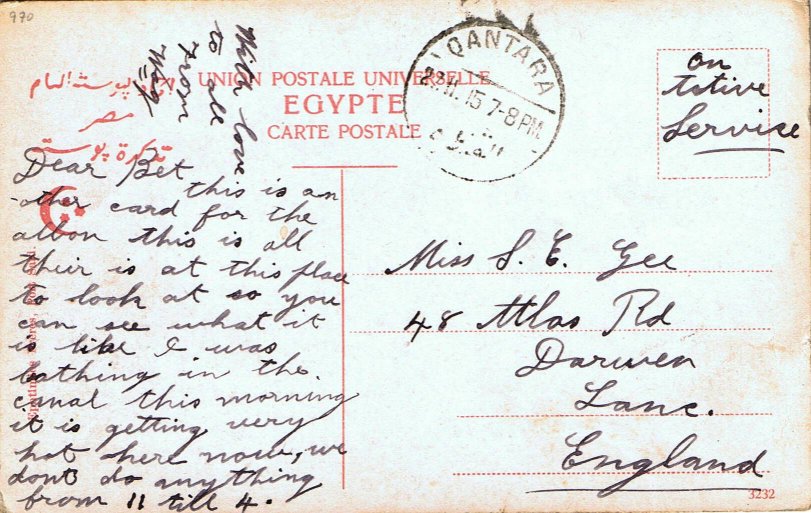 990
UNION POSTALE UNIVERSELLE
EGYPTE
CARTE POSTALE
مصر
تذكرة پوستة
QANTARA
II. 15 7-8 PM
القنطرة
on
Active
Service
With love
to all
from
Dear Bet
this is an
-other card for the
albon this is all
their is at this place
to look at so you
can see what it
is like I was
bathing in the.
canal this morning
it is getting very
hot here now, we
dont do anything
from 11 till 4.
Miss S. E. Gee
48 Atlas Rd
Darwen
Lanc.
England
3232